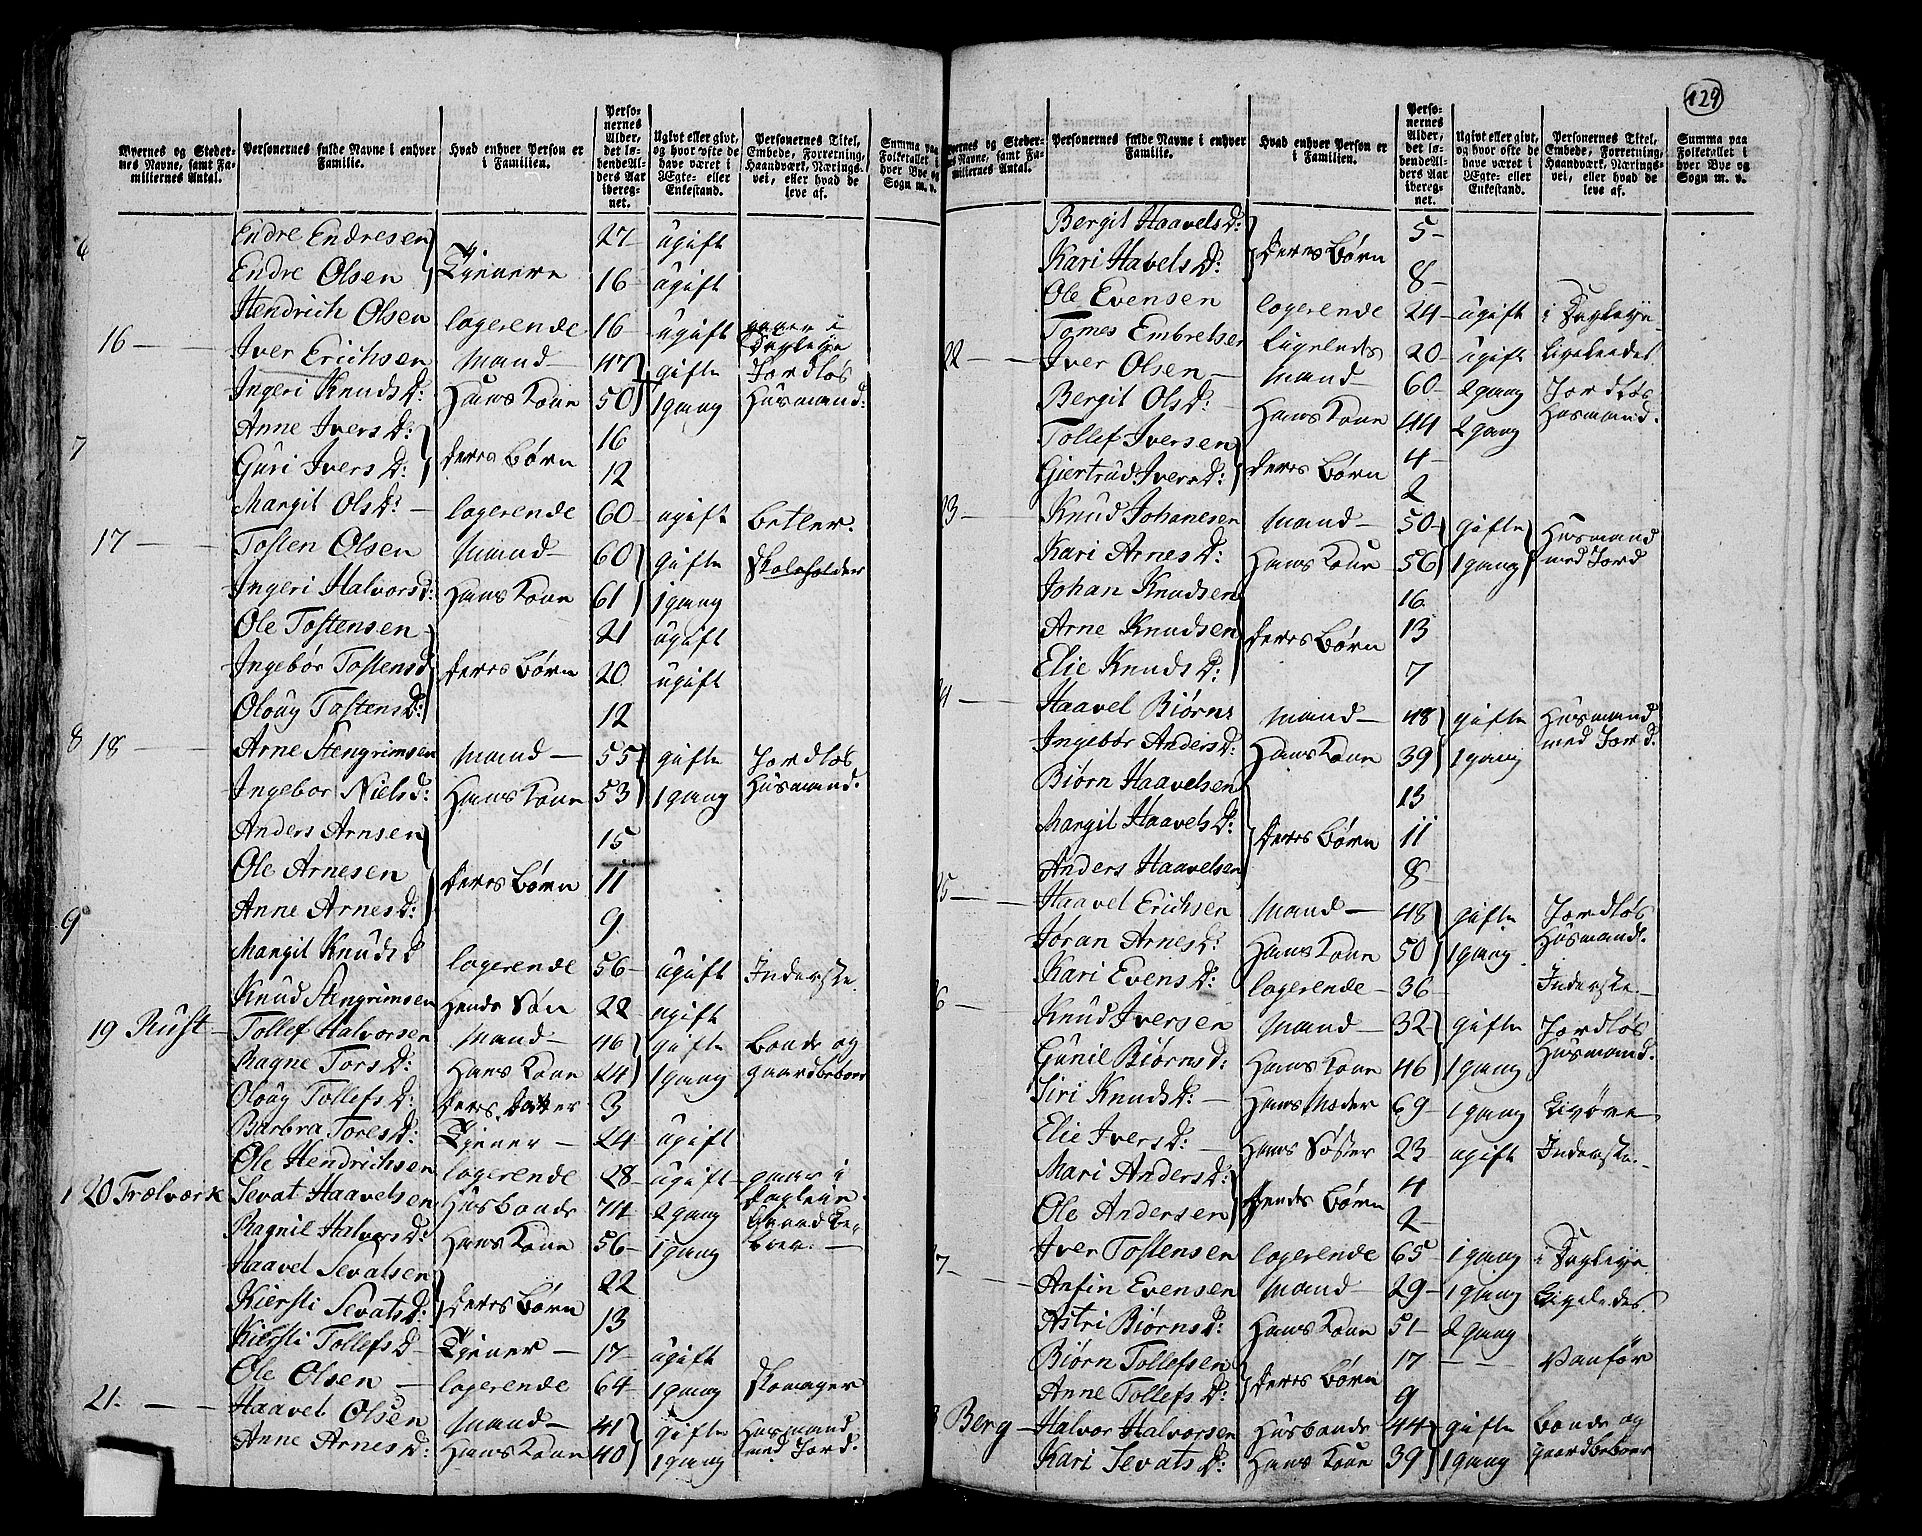 129
Byernes og Stedernes Navne, samt Familiernes Antal. Personernes fulde Navne i enhver Familie. Hvad enhver Person er i Familien. Personernes Alder, det løbende Alders Aar iberegnet. Ugivt eller givt, og hvor ofte de have været i Ægte- eller Enkestand. Personernes Titel, Embede, Forretning, Haandværk, Næringsvei, eller hvad de leve af. Summa paa Folketallet i hver Bye og Sogn m. v.
Endre Endresen } Tienere 27 ugift
Endre Olsen } 16 ugift
Hendrich Olsen logerende 16 ugift gaaer i Dagleye
16 — Iver Erichsen Mand — 47 } gifte Jordløs
Ingeri Knuds D: Hans Kone 50 } 1 gang Husmand:
Anne Ivers D: } deres Børn 16
Guri Ivers D: } 12
Margit Ols D: — logerende 60 — ugift betler.
17 — Tosten Olsen Mand — 60 } gifte Skoleholder
Ingeri Halvors D: Hans Kone 61 } 1 gang
Ole Tostensen } 21 ugift
Ingebor Tostens D } deres Børn 20 ugift
Oloug Tostens D: } 12
18 — Arne Stengrimsen Mand — 55 } gifte Jordløs
Ingebor Niels D: Hans Kone 53 } 1 gang Husmand.
Anders Arnsen } 15
Ole Arnesen } deres Børn 11
Anne Arnes D: } 9
Margit Knuds D logerende 56 — ugift Inderste.
Knud Stengrimsen Hends Søn 22 — ugift
19 Rust — Tollef Halvorsen Mand — 46 } gifte bonde og
Ragne Tors D: Hans Kone 24 } 1 gang gaardbeboer
Oloug Tollefs D: deres Datter 3
Barbra Tores D: Tiener — 24 — ugift
Ole Hendrichsen logerende 28 — ugift gaaer i
20 Trælværk Sevat Haavelsen Husbonde 74 2 gang Dagleie
Ragnil Halvors D: Hans Kone 56 — 1 gang
Haavel Sevatsen } deres Børn 22
Kiersti Sevats D: } 13
Kiersti Tollefs D — Tiener — 17 — ugift
Ole Olsen — logerende 64 — 1 gang Skomager
21. — Haavel Olsen Mand — 41 } gifte Husmand
Anne Arnes D: Hans Kone 40 } 1 gang med Jord.
Byernes og Stedernes Navne, samt Familiernes Antal. Personernes fulde Navne i enhver Familie. Hvad enhver Person er i Familien. Personernes Alder, det løbende Alders Aar iberegnet. Ugivt eller givt, og hvor ofte de have været i Ægte- eller Enkestand. Personernes Titel, Embede, Forretning, Haandværk, Næringsvei, eller hvad de leve af. Summa paa Folketallet i hver Bye og Sogn m. v.
Bergit Haavels D: } deres Børn 5 —
Kari Havels D: } 8 —
Ole Evensen logerende 24 — ugift i Dagleye
Tomes Embretsen Ligeledes 20 — ugift Ligeledes
22 — Iver Olsen — Mand — 60 — 2 gang Jordløs
Bergit Ols D: Hans Kone 44 2 gang Husmand.
Tollef Iversen } deres Børn 4 —
Giertrud Ivers D: } 2
23 — Knud Johanesen Mand — 50 } gifte } Husmand
Kari Arnes D: Hans Kone 56 } 1 gang } med Jord
Johan Knudsen } 16
Arne Knudsen } deres Børn 13
Elie Knuds D: } 7
Haavel Biørns Mand — 48 } gifte Husmand
Ingebor Anders D: Hans Kone 39 } 1 gang med Jord.
Biørn Haavelsen } 13
Margit Haavels D: } deres Børn 11
Anders Haavelsen } 8 —
25 — Haavel Erichsen Mand — 48 } gifte Jordløs
Joran Arnes D: Hans Kone 50 } 1 gang Husmand.
Kari Evens D: logerende — 36 — Inderste.
6 — Knud Iversen Mand — 32 } gifte Jordløs
Gunil Biørns D: Hans Kone 46 } 1 gang Husmand.
Siri Knuds D: — Hans Moder 69 — 1 gang
Elie Ivers D: Hans Søster 23 — ugift Inderste.
Mari Anders D: } Hendes Børn 4
Ole Andersen } 2 —
Iver Tostensen logerende 65 — 1 gang i Dagleye
7 — Anfin Evensen Mand — 29 — 1 gang Ligeledes.
Astri Biørns D: Hans Kone 51 — 2 gang
Biørn Tollefsen } deres Børn 17 — — Vanfør
Anne Tollefs D: } 9
Berg — Halvor Halvorsen Husbonde 44 } gifte bonde og
Kari Sevats D: Hans Kone 39 } 1 gang gaardbeboer